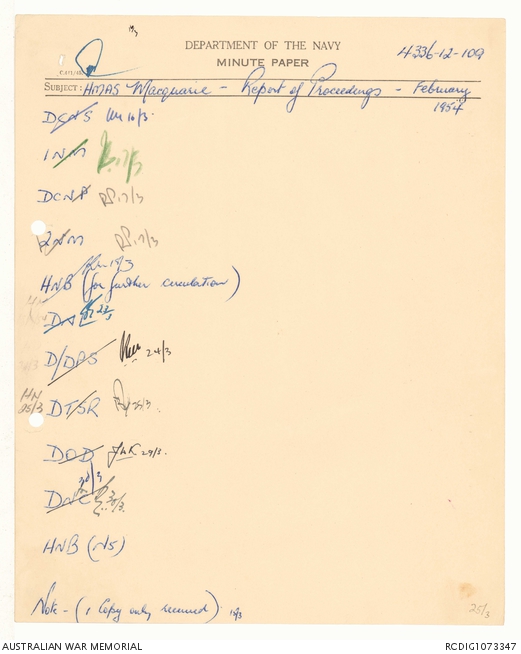 DEPARTMENT OF THE NAVY
MINUTE PAPER
4336-12-109
SUBJECT: HMAS Macquarie - Report of Proceedings - February
1954
DCNS 16/3.
1NM 17/3
DCNP 17/3
2NM 17/3
HNB (for further circulation)
23/3
D/DPS 24/3
HN
25/3
DTSR 25/3.
DOD 29/3.
30/3
DNC 30/3.
HNB (NS)
Note - (1 Copy only received)
25/3
AUSTRALIAN WAR MEMORIAL
RCDIG1073347